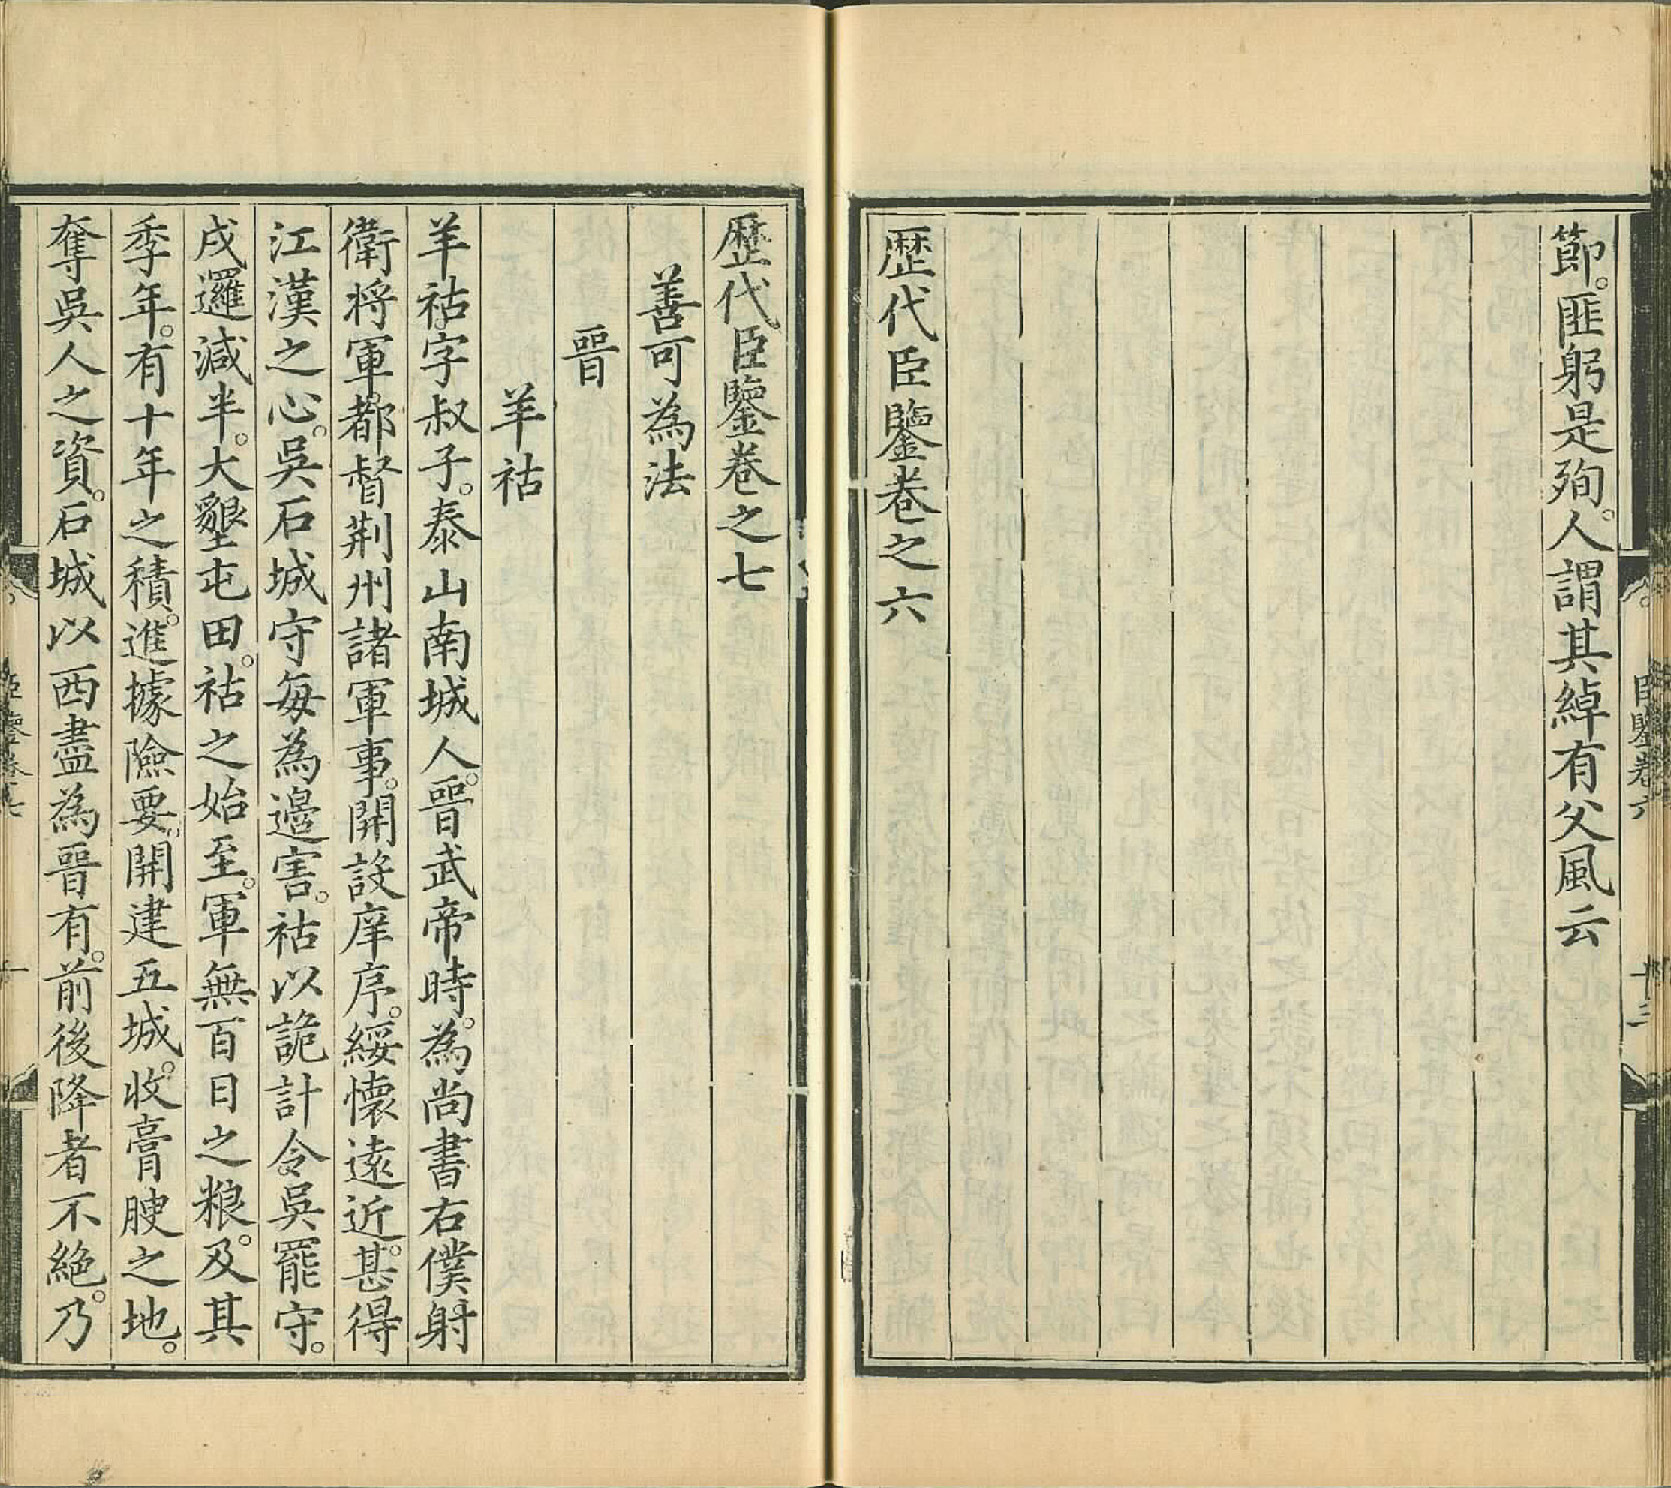 節。匪躬是殉。人謂其綽有父風云
歷代臣鑒卷之六
臣鑒卷六
十三
歷代臣鑒卷之七
善可為法
晉
羊祜
羊祜字叔子。泰山南城人。晉武帝時。為尚書右僕射
衛將軍都督荆州諸軍事。開設庠序。綏懷遠近。甚得
江漢之心。吳石城守每為邊害。祜以詭計令吳罷守。
戍邏減半。大墾屯田。祜之始至。軍無百日之粮。及其
季年。有十年之積。進據險要。開建五城。收膏腴之地。
奪吳人之資。石城以西盡為晉有。前後降者不絶。乃
臣鑒卷七
一